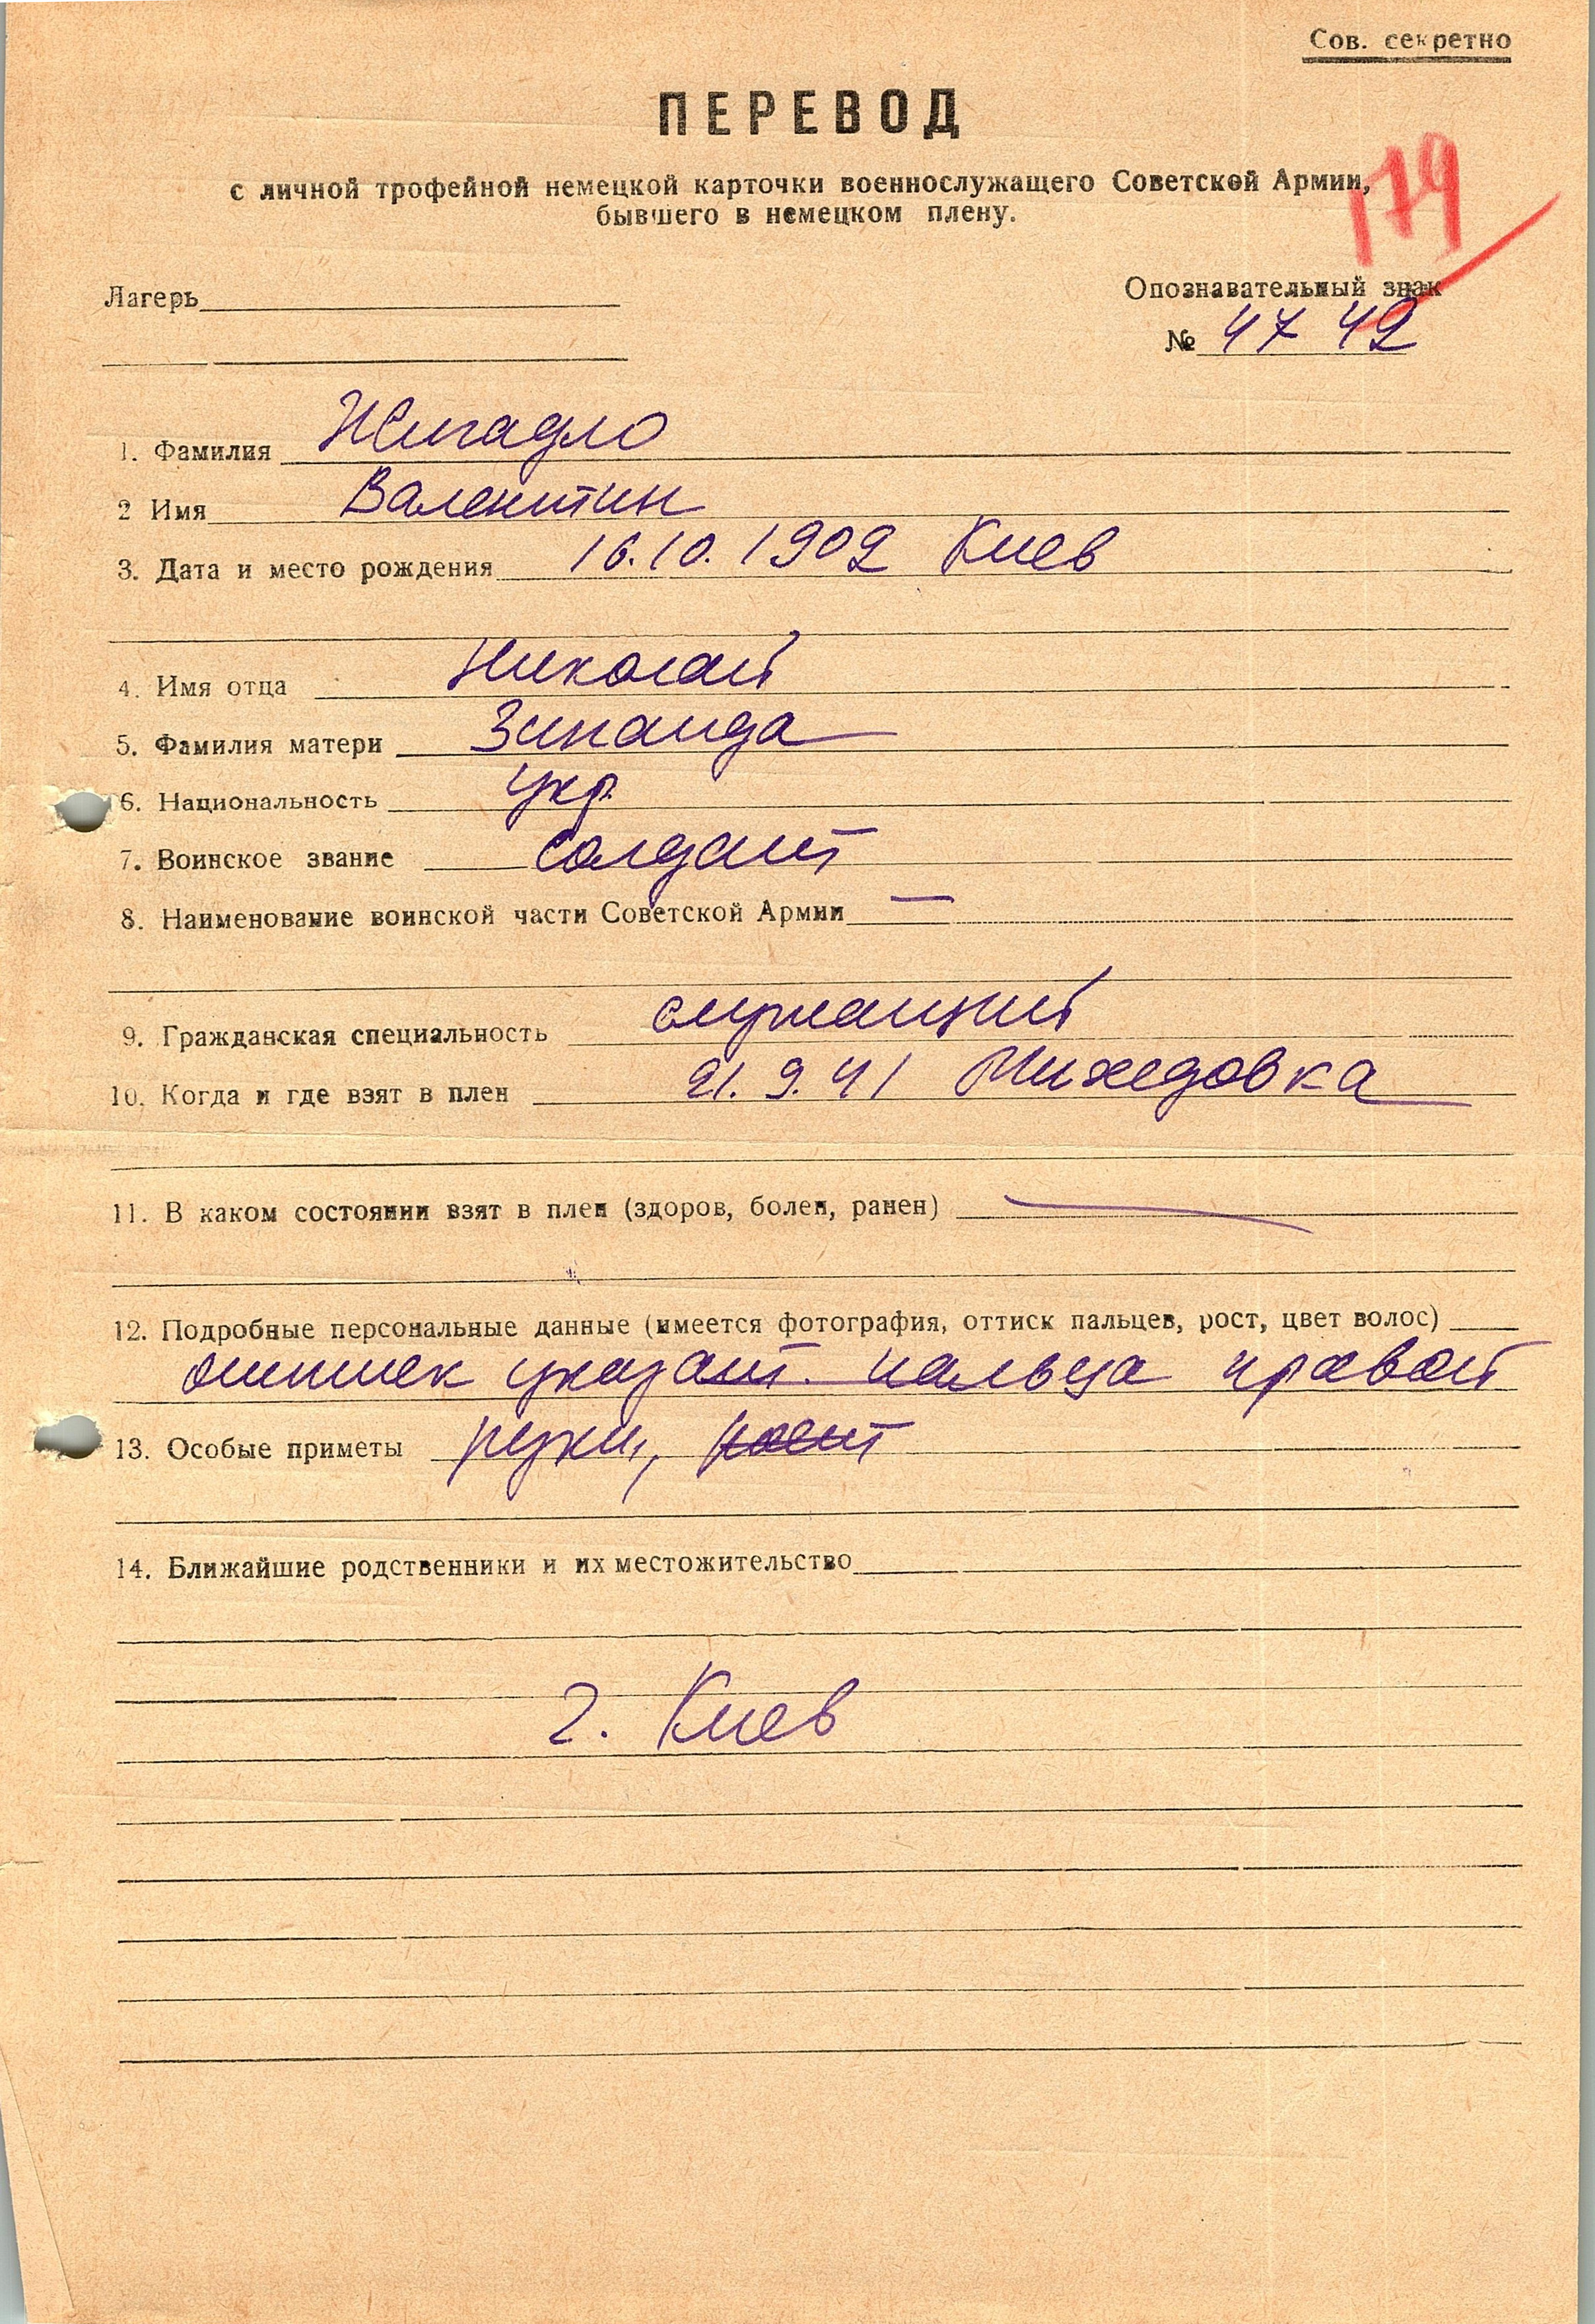 Сов. секретно
ПЕРЕВОД
с личной трофейной немецкой карточки военнослужащего Советской Армии,
бывшего в немецком плену.
179
Лагерь
Опознавательный знак
№ 47 42
1. Фамилия Жигадло
2 Имя Валентин
3. Дата и место рождения 16.10.1902 Киев
4. Имя отца Николай
5. Фамилия матери Зинаида
6. Национальность укр.
7. Воинское звание солдат
8. Наименование воинской части Советской Армии —
9. Гражданская специальность служащий
10. Когда и где взят в плен 21.9.41 Михедовка
11. В каком состоянии взят в плен (здоров, болен, ранен) —
12. Подробные персональные данные (имеется фотография, оттиск пальцев, рост, цвет волос)
оттиск указат. пальца правой
13. Особые приметы руки, рост
14. Ближайшие родственники и их местожительство
г. Киев